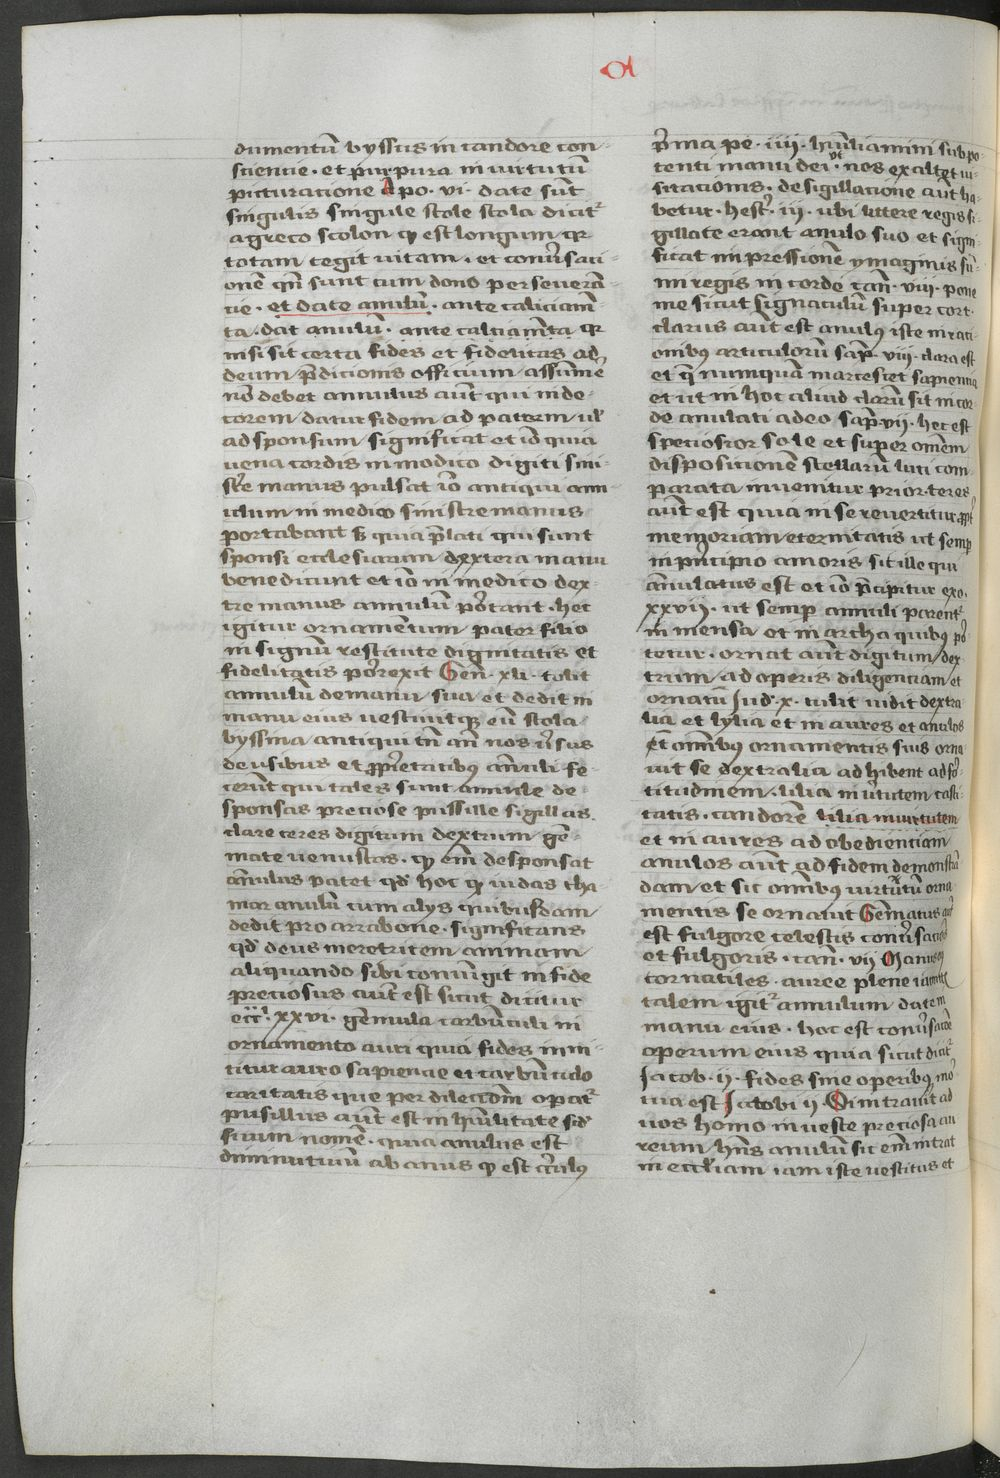 dumentū byssus in candore con-
sciencie · et purpura in uirtutū
picturacione Apo · vi · date sūt
singulis singule stole stola dicit᷑
a greco stolon qᷓ est longum qᷓ
totam tegit uitam · et conūsaci-
onē qn̄ sunt cum dono perseuerā-
cie · et date anulū · ante calciamē-
ta · dat anulū · ante calciamēta qᷓ
nisi sit certa fides et fidelitas ad
deum p̄dicionis officium assume
nō debet annulus aūt qui in de-
corem datur fidem ad patrem ul̓
ad sponsum significat et id quia
uena cordis in modico digiti sini-
str̄e manus pulsat iō antiqui ann-
ulum in medico sinistre manus
portabant s̄ quia p̄lati qui sunt
sponsi ecclesiarum dextera manu
benedicunt et iō in medico dex-
tre manus annulū portant · hec
igitur ornamentum pater filio
in signū restitute dignitatis et
fidelitatis porrexit Gen̄ · xli · tolit
annulū de manu sua et dedit in
manu eius uestiuitqꝫ eū stola
byssina antiqui tn̄ an̄ nos ūsus
de usibus et ꝓp̄rietatibus annuli fe-
cerūt qui tales sunt annule de-
sponsas preciose pusille sigillas
clare teres digitum dextrum gē-
mate uenustas · qᷓ em̄ desponsat
annulus patet qd̓ hoc qᷓ iudas tha-
mar anulū cum alijs quibusdam
dedit pro arrabone · significans
qd̓ deus meretricem animam
aliquando sibi coniungit in fide
preciosus aut est sicut dicitur
ecc̄l · xxvi · gēmula carbūculi in
ornamento auri quia fides inni-
titur auro sapiencie et carbūculo
caritatis que per dilectōm opat᷑
pusillus aut est in hūilitate scd̓
suum nomē · quia anulus est
diminutiuū ab anus qᷓ est circulus
p̄ma pe · iiii · hūiliamini sub po-
tenti manu dei · ut nos exaltet ui-
sitacionis · de sigillacione aūt ha-
betur · hest᷑ · iii · ubi littere regis si-
gillate erant anulo suo et signi-
ficat impressionē ymaginis sū-
mi regis in corde can̄ · viii · pone
me sicut signaculū super cor t·
clarus aūt est anulꝰ iste in raci-
onibꝰ articulorū sap̄ · viii · clara est
et q̄ numquā marcescet sapiencia
et ut in hoc aliud clarū sit in cor-
de anulati a deo sap̄ · vii · hec est
speciosior sole et super omēm
disposicionē stellarū luci com
parata inuenitur prior · teres
aūt est quia in se reuertitur ꝓpt̄
memoriam eternitatis ut semp̄
in p̄ncipio amoris sit ille qui
ānulatus est et iō p̄cipitur exo ·
xxvii · ut semp̄ annuli parent᷑
in mensa et in archa quibꝰ por-
tetur · ornat aūt digitum dex
trum ad operis diligenciam et
ornatū Jud̓ · x · tulit iudit dextra-
lia et lylia et in aures et anulos
Et omībꝰ ornamentis suis orna-
uit se dextralia adhibent ad for-
titudinem · lilia in ūtutem casti-
tatis · candorē lilia in uirtutem
et in aures ad obedienciam
anulos aūt ad fidem demonstrā
dam et sic omībus uirtutū orna
mentis se ornauit Gēmatus aūt
est fulgore celestis conūsacio
et fulgoris · can̄ · vii Manus
tornatiles · auree plene iacinct
talem igit᷑ annulum datem
manu eius · hoc est conūsacōe
operum eius quia sicut dicit᷑
Jacob · ii · fides sine operibꝰ mor
tua est Jacobi ii Si intrauit ad
uos homo in ueste preciosa au
reum hn̄s anulū sic em̄ intrat
in eccl̓iam iam iste uestitus et